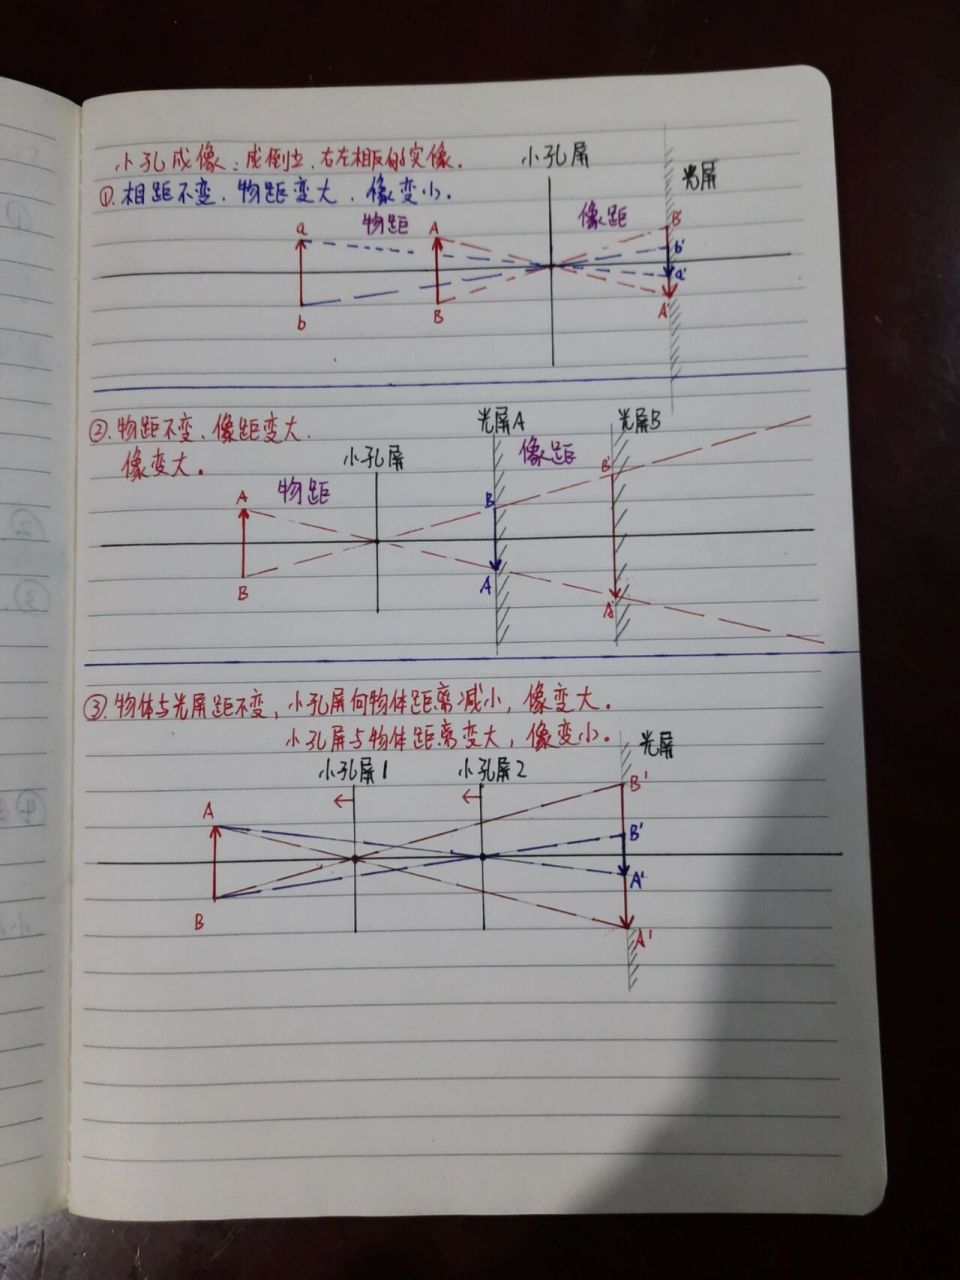 小孔成像：成倒立、右左相反的实像.
小孔屏
光屏
①.相距不变.物距变大，像变小.
物距
像距
a
A
B'
b'
a'
A'
b
B
②.物距不变、像距变大.
像变大。
小孔屏
光屏A
光屏B
物距
像距
A
B
B'
B
A
A'
③.物体与光屏距不变，小孔屏向物体距离减小，像变大。
小孔屏与物体距离变大，像变小。
小孔屏1
小孔屏2
光屏
A
B'
B'
A'
B
A'
①
②
③.
④